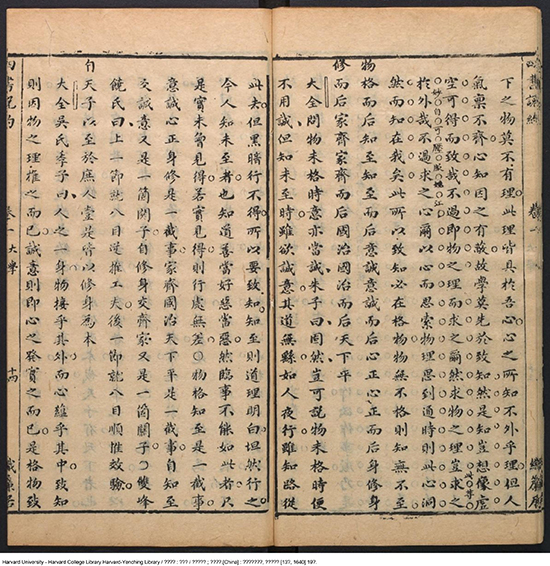 下之物莫不有理此理皆具於吾心心之所知不外乎理但人
氣稟不齊心知因之有蔽故學莫先於致知然是知豈想像虛
空可得而致哉不過即物之理而求之爾然求物之理豈求之
於外哉不過求之心爾以心而思索物理思到通時則此心洞
然而知在我矣此所以致知必在格物物無不格則知無不至
物格而后知至知至而后意誠意誠而后心正心正而后身修身
修而后家齊家齊而后國治國治而后天下平
大全問物未格時意亦當誠朱子曰固然豈可說物未格時便
不用誠但知未至時雖欲誠意其道無繇如人夜行雖知路從
此去但黑暗行不得所以要致知知至則道理明白坦然行之
今人知未至者也知道善當好惡當惡然臨事不能如此者只
是實未曾見得若實見得則行處無差○物格知至是一截事
意誠心正身修是一截事家齊國治天下平是一截事自知至
交誠意又是一箇關子自修身交齊家又是一箇關子○雙峰
饒氏曰上一節就八目逆推工夫後一節就八目順推效驗
自天子以至於庶人壹是皆以修身為本
大全吳氏季子曰人之一身物接乎其外而心蘊乎其中致知
則因物之理推之而已誠意則即心之發實之而已是格物致
四書說約 卷一大學 十四 織簾居
Harvard University - Harvard College Library Harvard-Yenching Library / ???? : ??? / ????? ; ???? [China] : ???????, ????? [13?, 1640] 197.